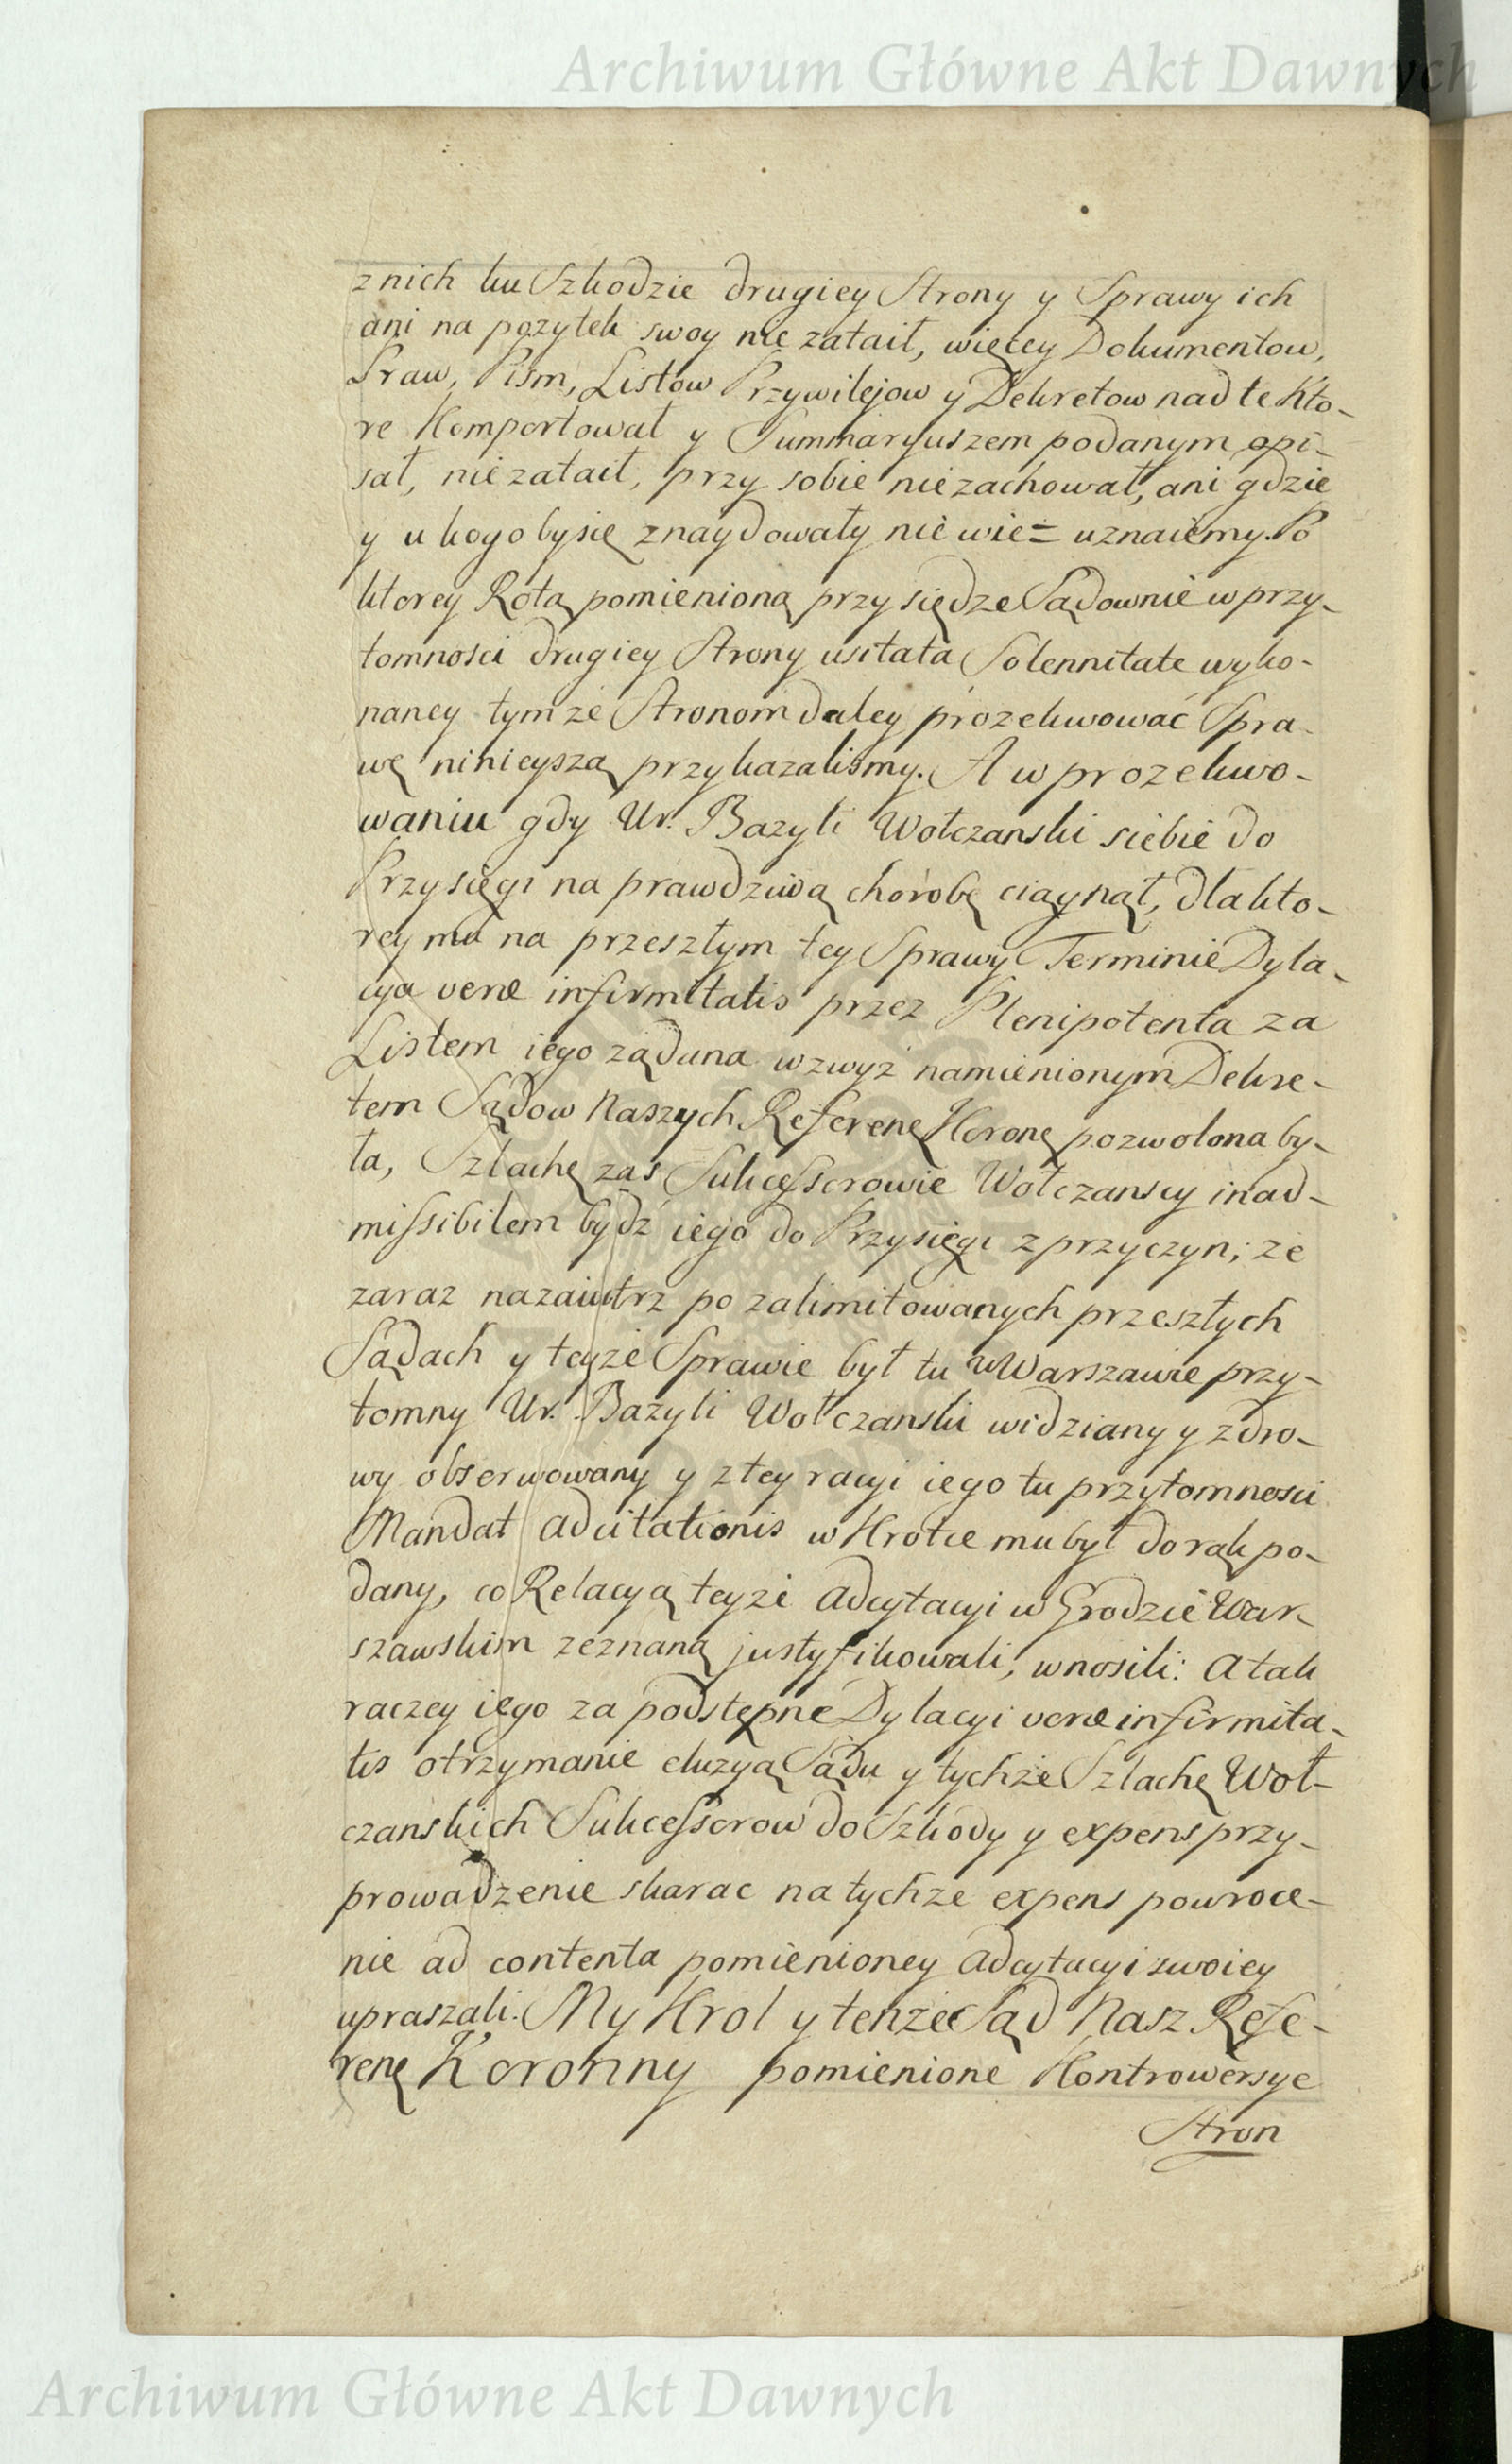 Archiwum Główne Akt Dawnych
z nich ku Szkodzie drugiey Strony y Sprawy ich
ani na pozytek swoy nie zataił, więcey Dokumentow,
Praw, Pism, Listow Przywilejow y Dekretow nad te Kto-
re Komportował y Summaryuszem podanym opi-
sał, nie zataił, przy sobie nie zachował, ani gdzie
y u kogo by się znaydowały nie wie = uznaiemy. Po
ktorey Rotą pomienioną przysiędze Sądownie w przy-
tomnosci drugiey Strony usitata Solennitate wyko-
naney tymże Stronom daley prozekwować Spra-
wę ninieyszą przykazalismy. A w prozekwo-
waniu gdy Ur. Bazyli Wołczanski siebie do
Przysięgi na prawdziwą chorobę ciągnął, dla kto-
rey mu na przeszłym tey Sprawy Terminie Dyla-
cya veræ infirmitatis przez Plenipotenta za
Listem iego ządana wzwyż namienionym Dekre-
tem Sądow Naszych Referenę Koronę pozwolona by-
ła, Szlachę zas Sukcessorowie Wołczanscy inad-
missibilem bydź iego do Przysięgi z przyczyn; że
zaraz nazaiutrz po zalimitowanych przeszłych
Sądach y teyże Sprawie był tu w Warszawie przy-
tomny Ur. Bazyli Wołczanski widziany y zdro-
wy obserwowany y z tey racyi iego tu przytomnosci
Mandat adcitationis w Krotce mu był do rąk po-
dany, co Relacyą teyże adcytacyi w Grodzie War-
szawskim zeznaną justyfikowali, wnosili: a tak
raczey iego za podstępne Dylacyi veræ infirmita-
tis otrzymanie eluzyą Sądu y tychże Szlachę Woł-
czanskich Sukcessorow do Szkody y expens przy-
prowadzenie skarac na tychze expens powroce-
nie ad contenta pomienioney adcytacyi swoiey
upraszali. My Krol y tenże Sąd Nasz Refe-
renę Koronny pomienione Kontrowersye
Stron
Archiwum Główne Akt Dawnych